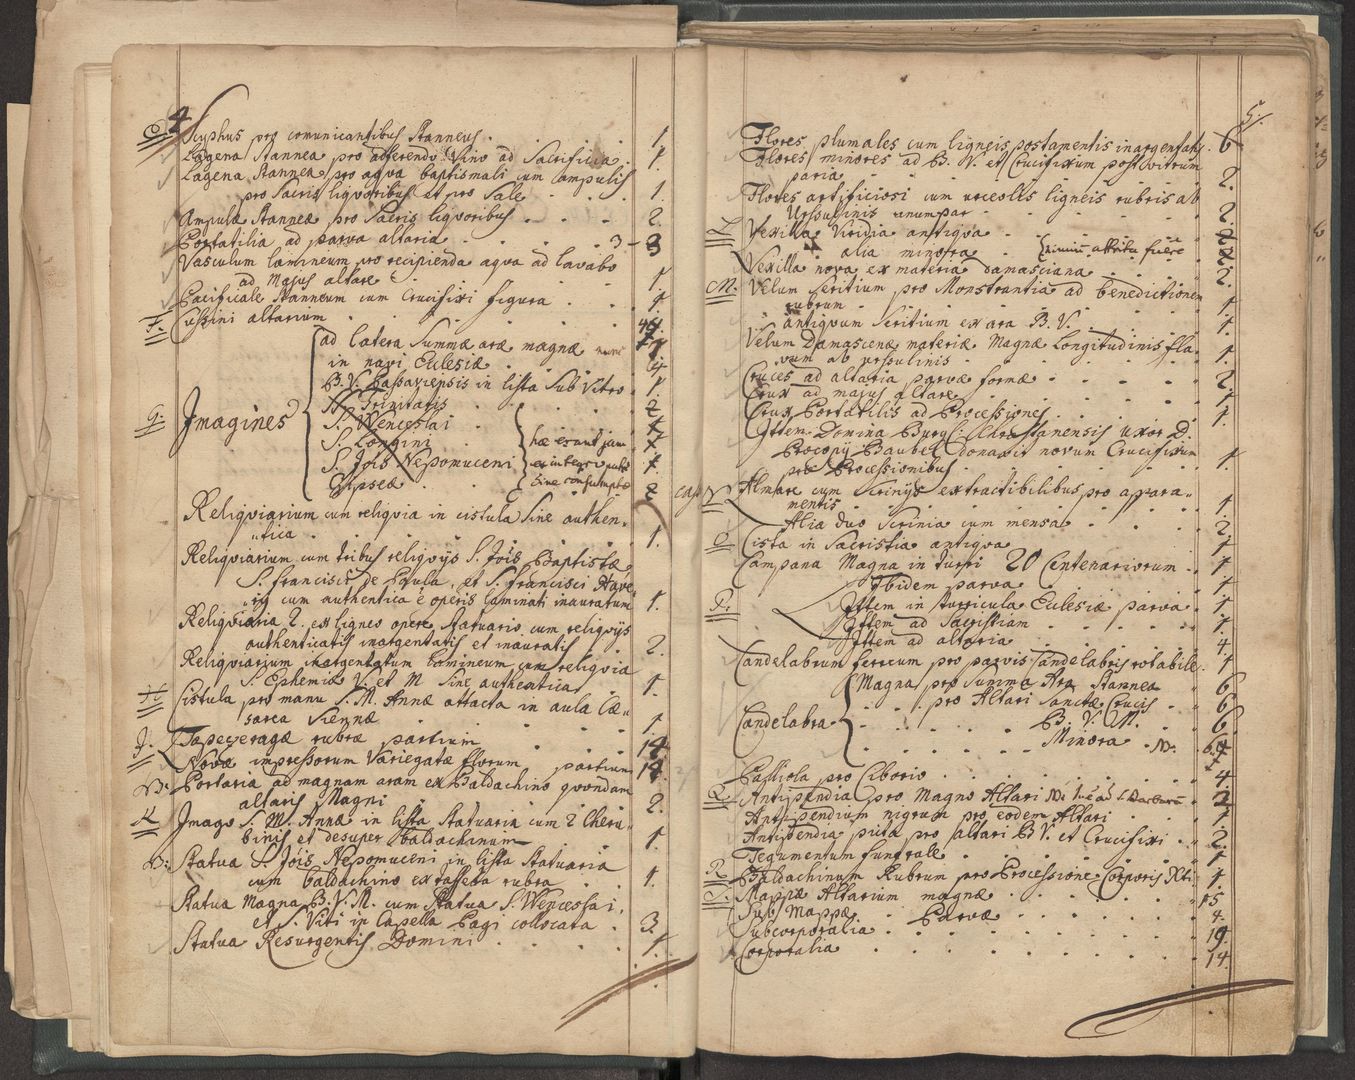 4
Scyphus pro comunicantibus Stanneus . 1.
Lagena Stannea pro adferendo Vino ad Sacrificia . 1.
Lagena Stannea pro aqva baptismali cum ampulis
pro Sacris liqvoribus et pro Sale . 1.
Ampulæ Stanneæ pro Sacris liqvoribus . 2.
Portatilia ad parva altaria . 3 - 3
Vasculum lamineum pro recipienda aqva ad lavabo
ad Majus altare . 1
Pacificale Stanneum cum Crucifixi figura . 1.
F. Cussini altarium
G. Imagines
ad latera Summæ aræ magnæ
in navi Ecclesiæ
B. V. Passaviensis in lista Sub Vitro . 1
SS. Trinitatis . 2
S. Wenceslai
S. Longini
S. Jois Nepomuceni
Gipseæ . 2
hæ erant jam
Sine consumptæ
Reliqviarium cum reliqvia in cistula Sine authen-
tica . 1.
Reliqviarium cum tribus reliqvijs S. Jois Baptistæ,
S. Francisci de Paula, et S. Francisci Xave-
rij cum authentica operis laminati inauratum 1.
Reliqviaria 2. ex ligneo opere Statuario cum reliqvijs
authenticatis inargentatis et inauratis . 2.
Reliqviarium inargentatum lamineum cum reliqvia
S. Ephemiæ V. et M Sine authentica . 1.
H. Cistula pro manu S. M. Annæ attacta in aula Cæ-
sarea Viennæ . 1.
J. Tapeceragæ rubræ partium
Novæ impressorum Variegatæ florum, partium
Portaria ad magnam aram ex Baldachino qvondam
altaris Magni . 2.
K Imago S. M. Annæ in lista Statuaria cum 2 Cheru-
binis et desuper baldachinum . 1.
Statua S. Jois Nepomuceni in lista Statuaria
cum baldachino ex taffeta rubra . 1.
Statua Magna B. V. M. cum Statua S. Wenceslai,
et S. Viti in Capella Pagi collocata . 3.
Statua Resurgentis Domini . 1.
5.
Flores plumales cum ligneis postamentis inargentatis . 6
Flores minores ad B. V. et Crucifixum post vitrum
paria . 2.
Flores artificiosi cum urceolis ligneis rubris ab
Urssulinis unum par . 2.
L. Vexilla Viridia antiqva
alia minora
Vexilla nova ex materia damasciana . 2.
M. Velum Seritium pro Monstrantia ad benedictionem
rubrum . 1
antiqvum Seritium ex ara B. V. . 1.
Velum Damascenæ materiæ Magnæ Longitudinis fla-
vum ab Urssulinis . 1
Cruces ad altaria parvæ formæ . 2.
Crux ad majus altare . 1
Crux Portatilis ad Processiones . 1.
Ittem Domina Uxor D.
Procopij donavit novum Crucifixum
pro Processionibus . 1.
N. Almare cum Scrinijs extractibilibus pro appara-
mentis . 1
Alia duo Scrinia cum mensa . 2.
O. Cista in Sacristia antiqva . 1
Campana Magna in turri 20 Centenariorum . 1
P. Ibidem parva . 1
Ittem in turricula Ecclesiæ parva . 1
Ittem ad Sacristiam . 1
Ittem ad altaria . 4.
Candelabrum ferreum pro parvis Candelabris rotabile . 1
Candelabra
Magna pro Summa Ara Stannea . 6
pro Altari Sanctæ Crucis . 6
B. V. M. . 6.
Minora
Palliola pro Ciborio . 4
Q. Antipendia pro Magno Altari
Antipendium nigrum pro eodem Altari . 1
Antipendia picta pro altari B V. et Crucifixi . 2.
Tegumentum funerale . 1
R. Baldachinum Rubrum pro Processione Corporis Xti . 1
S. Mappæ Altarium magnæ . 15
Sub Mappæ Parvæ . 4.
Subcorporalia . 19
Corporalia . 14.